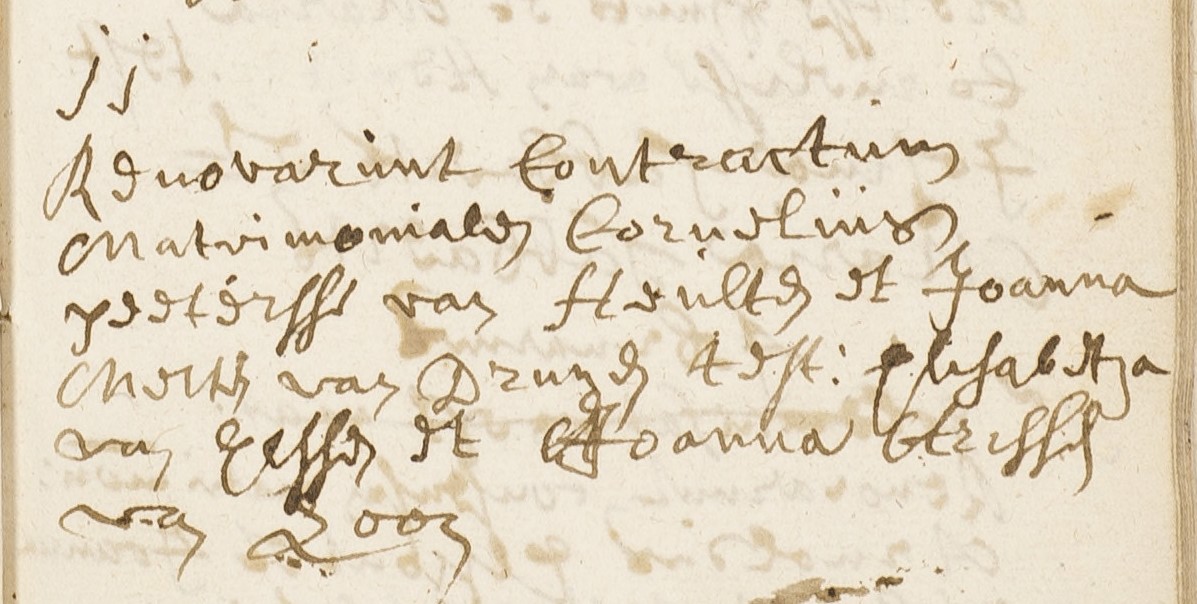 jj
Renovarunt Contractum
Matrimonialem Cornelius
peetersse van Heulten et Joanna
Meltis van Drunen test: Elisabetha
van Hessen et Joanna
van Loon